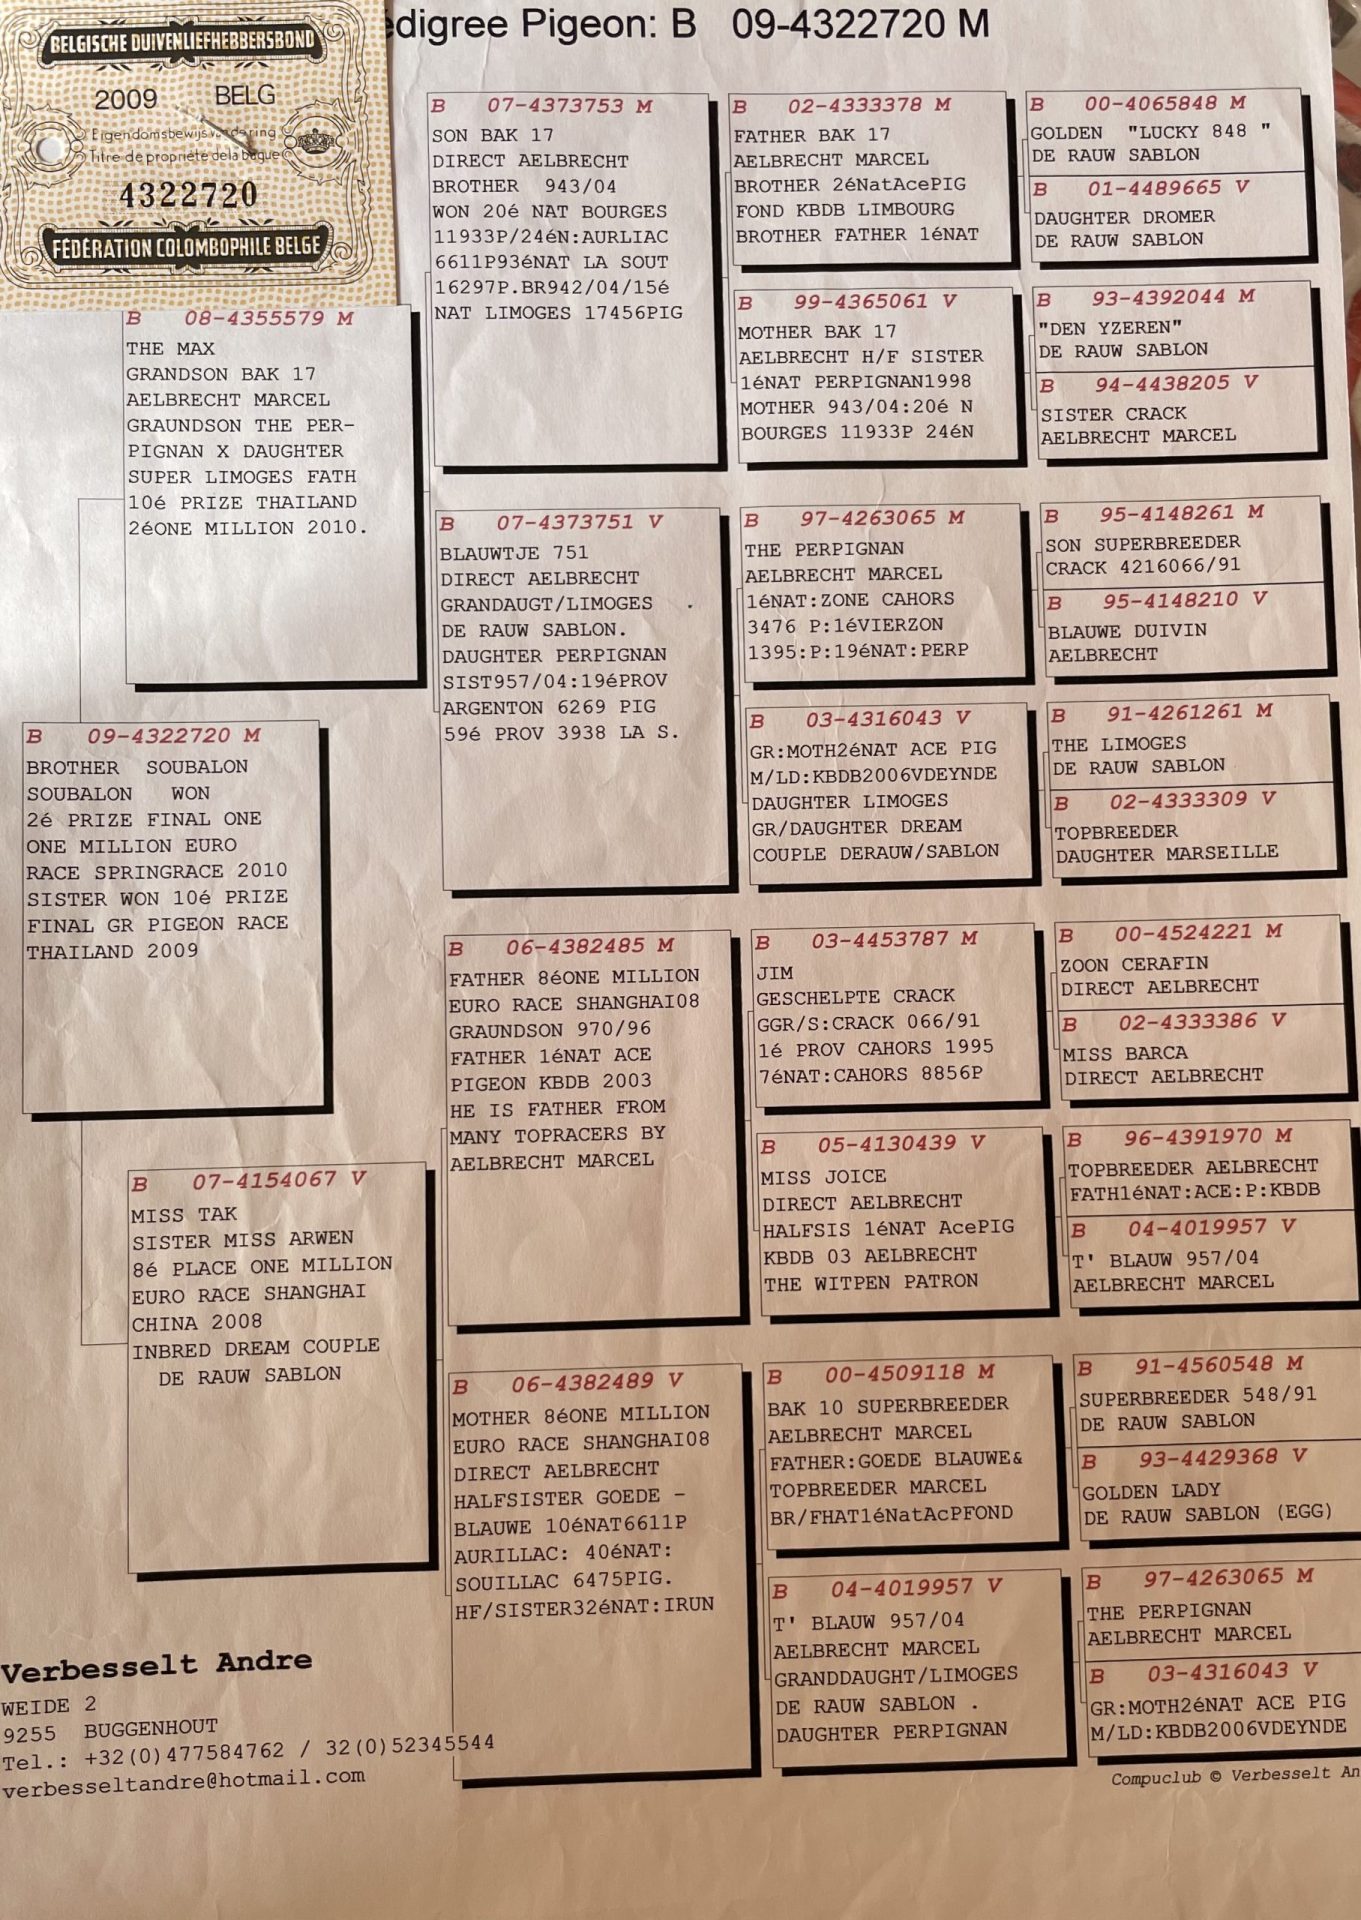 BELGISCHE DUIVENLIEFHEBBERSBOND
2009 BELG
Eigendomsbewijs ring
Titre de propriété de la bague
4322720
FÉDÉRATION COLOMBOPHILE BELGE
edigree Pigeon: B 09-4322720 M
B 09-4322720 M
BROTHER SOUBALON
SOUBALON WON
2é PRIZE FINAL ONE
ONE MILLION EURO
RACE SPRINGRACE 2010
SISTER WON 10é PRIZE
FINAL GR PIGEON RACE
THAILAND 2009
B 08-4355579 M
THE MAX
GRANDSON BAK 17
AELBRECHT MARCEL
GRAUNDSON THE PER-
PIGNAN X DAUGHTER
SUPER LIMOGES FATH
10é PRIZE THAILAND
2éONE MILLION 2010.
B 07-4154067 V
MISS TAK
SISTER MISS ARWEN
8é PLACE ONE MILLION
EURO RACE SHANGHAI
CHINA 2008
INBRED DREAM COUPLE
DE RAUW SABLON
B 07-4373753 M
SON BAK 17
DIRECT AELBRECHT
BROTHER 943/04
WON 20é NAT BOURGES
11933P/24éN:AURLIAC
6611P93éNAT LA SOUT
16297P.BR942/04/15é
NAT LIMOGES 17456PIG
B 07-4373751 V
BLAUWTJE 751
DIRECT AELBRECHT
GRANDAUGT/LIMOGES
DE RAUW SABLON.
DAUGHTER PERPIGNAN
SIST957/04:19éPROV
ARGENTON 6269 PIG
59é PROV 3938 LA S.
B 06-4382485 M
FATHER 8éONE MILLION
EURO RACE SHANGHAI08
GRAUNDSON 970/96
FATHER 1éNAT ACE
PIGEON KBDB 2003
HE IS FATHER FROM
MANY TOPRACERS BY
AELBRECHT MARCEL
B 06-4382489 V
MOTHER 8éONE MILLION
EURO RACE SHANGHAI08
DIRECT AELBRECHT
HALFSISTER GOEDE -
BLAUWE 10éNAT6611P
AURILLAC: 40éNAT:
SOUILLAC 6475PIG.
HF/SISTER32éNAT:IRUN
B 02-4333378 M
FATHER BAK 17
AELBRECHT MARCEL
BROTHER 2éNatAcePIG
FOND KBDB LIMBOURG
BROTHER FATHER 1éNAT
B 99-4365061 V
MOTHER BAK 17
AELBRECHT H/F SISTER
1éNAT PERPIGNAN1998
MOTHER 943/04:20é N
BOURGES 11933P 24éN
B 97-4263065 M
THE PERPIGNAN
AELBRECHT MARCEL
1éNAT:ZONE CAHORS
3476 P:1éVIERZON
1395:P:19éNAT:PERP
B 03-4316043 V
GR:MOTH2éNAT ACE PIG
M/LD:KBDB2006VDEYNDE
DAUGHTER LIMOGES
GR/DAUGHTER DREAM
COUPLE DERAUW/SABLON
B 03-4453787 M
JIM
GESCHELPTE CRACK
GGR/S:CRACK 066/91
1é PROV CAHORS 1995
7éNAT:CAHORS 8856P
B 05-4130439 V
MISS JOICE
DIRECT AELBRECHT
HALFSIS 1éNAT AcePIG
KBDB 03 AELBRECHT
THE WITPEN PATRON
B 00-4509118 M
BAK 10 SUPERBREEDER
AELBRECHT MARCEL
FATHER:GOEDE BLAUWE&
TOPBREEDER MARCEL
BR/FHAT1éNatAcPFOND
B 04-4019957 V
T' BLAUW 957/04
AELBRECHT MARCEL
GRANDDAUGHT/LIMOGES
DE RAUW SABLON .
DAUGHTER PERPIGNAN
B 00-4065848 M
GOLDEN "LUCKY 848 "
DE RAUW SABLON
B 01-4489665 V
DAUGHTER DROMER
DE RAUW SABLON
B 93-4392044 M
"DEN YZEREN"
DE RAUW SABLON
B 94-4438205 V
SISTER CRACK
AELBRECHT MARCEL
B 95-4148261 M
SON SUPERBREEDER
CRACK 4216066/91
B 95-4148210 V
BLAUWE DUIVIN
AELBRECHT
B 91-4261261 M
THE LIMOGES
DE RAUW SABLON
B 02-4333309 V
TOPBREEDER
DAUGHTER MARSEILLE
B 00-4524221 M
ZOON CERAFIN
DIRECT AELBRECHT
B 02-4333386 V
MISS BARCA
DIRECT AELBRECHT
B 96-4391970 M
TOPBREEDER AELBRECHT
FATH1éNAT:ACE:P:KBDB
B 04-4019957 V
T' BLAUW 957/04
AELBRECHT MARCEL
B 91-4560548 M
SUPERBREEDER 548/91
DE RAUW SABLON
B 93-4429368 V
GOLDEN LADY
DE RAUW SABLON (EGG)
B 97-4263065 M
THE PERPIGNAN
AELBRECHT MARCEL
B 03-4316043 V
GR:MOTH2éNAT ACE PIG
M/LD:KBDB2006VDEYNDE
Verbesselt Andre
WEIDE 2
9255 BUGGENHOUT
Tel.: +32(0)477584762 / 32(0)52345544
verbesseltandre@hotmail.com
Compuclub © Verbesselt An